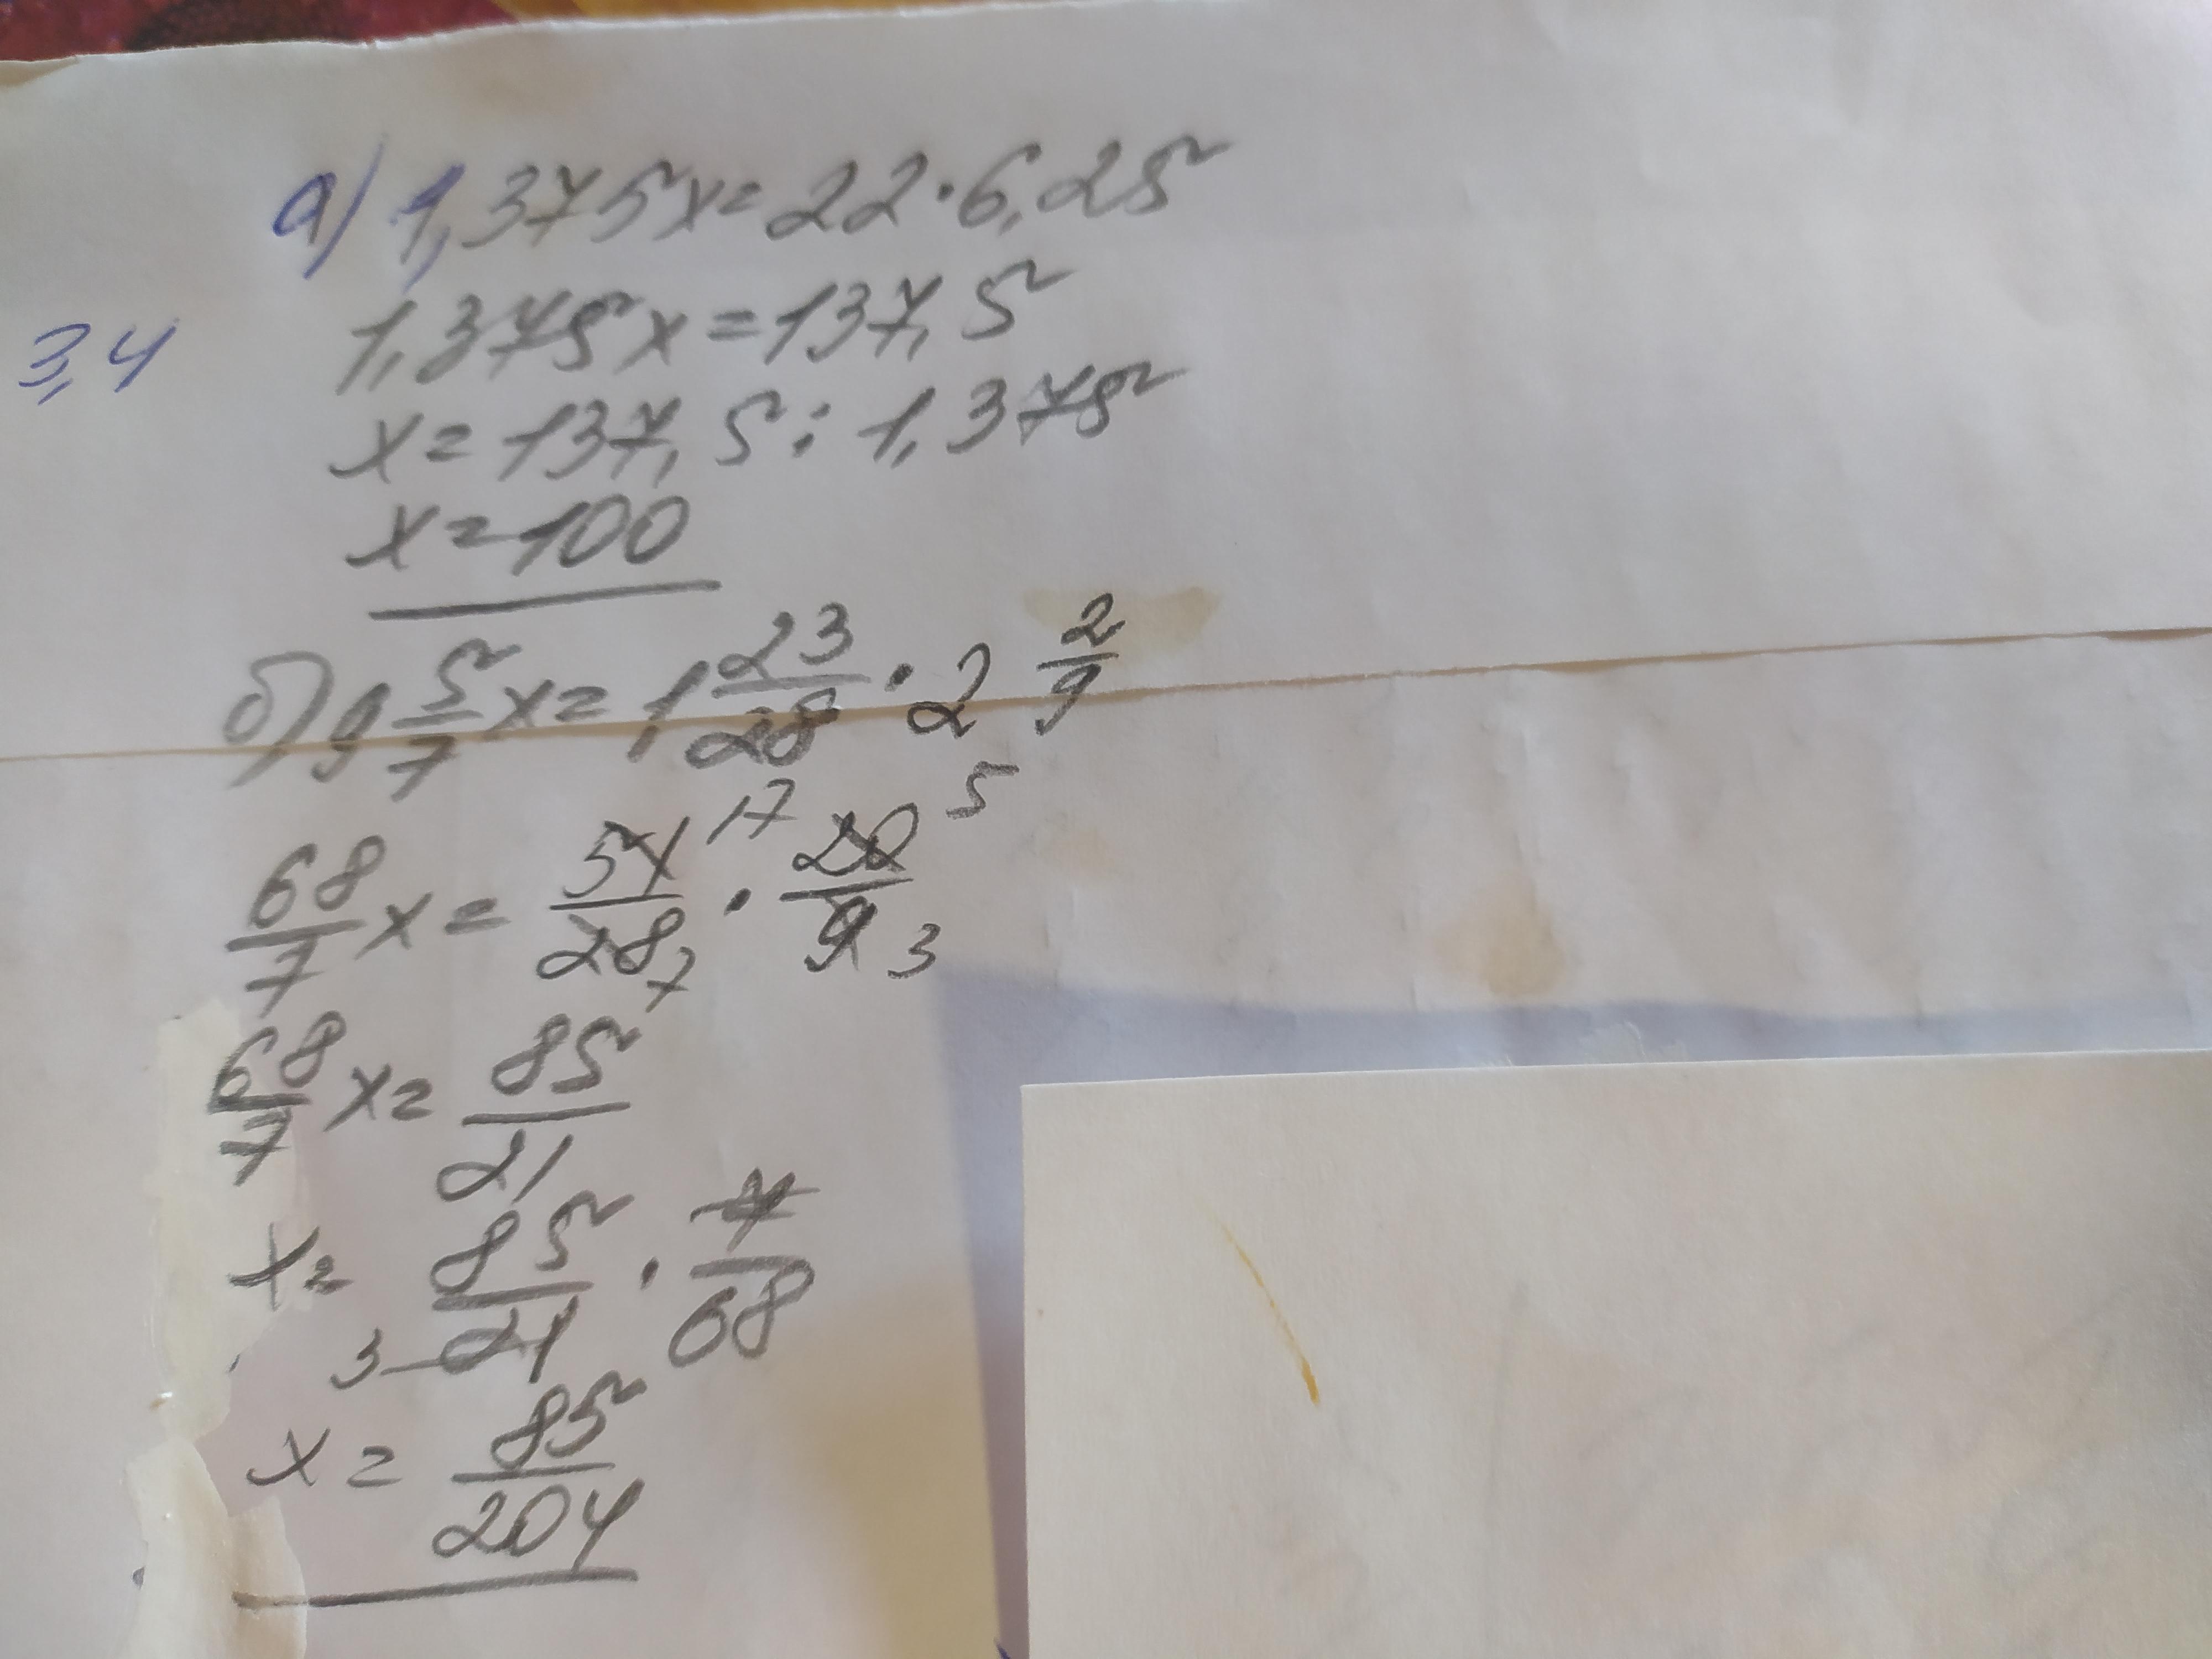 а) 1,375x=22·6,25
3,4
1,375x=137,5
x=137,5:1,375
x=100
б) 9 5/7 x= 1 23/28 · 2 2/9
68/7 x= 51 17/28 7 · 20 5/9 3
68/7 x= 85/21
x= 85/21 · 7/68
3
x= 85/204